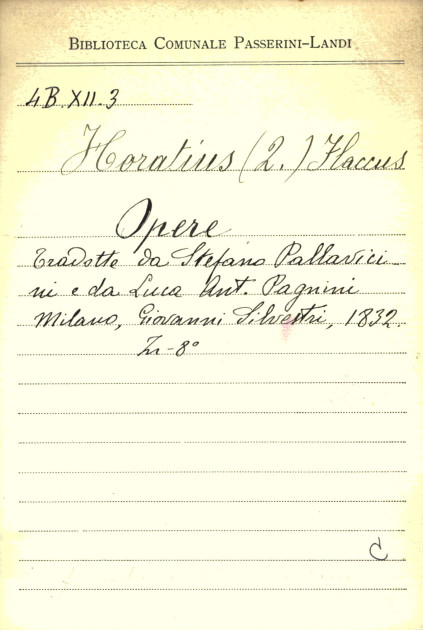 BIBLIOTECA COMUNALE PASSERINI-LANDI
4B.XII.3
Horatius (2.) Flaccus
Opere
tradotte da Stefano Pallavici-
ni e da Luca Ant. Pagnini
Milano, Giovanni Silvestri, 1832.
In-8°
C